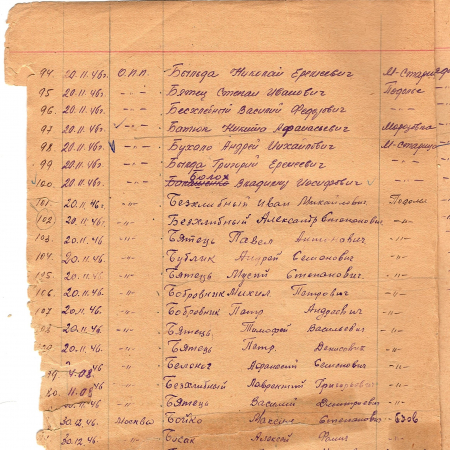 94. 20.11.46г. О.П.П. Былыда Николай Ерелисевич М-Стариц
95 20.11.46г. -"- Бятец Степан Иванович Подлое
96. 20.11.46г. -"- Бесхлебный Василий Федорович
97 20.11.46г. -"- Батюк Никита Афанасевич Морозовка
98. 20.11.46г. -"- Бухало Андрей Михайлович М-Старица
99 20.11.46г. -"- Былда Григорий Ерелисевич
Болох
100. 20.11.46г. -"- Владислу Иосифович
101. 20.11.46г. -"- Безхлибный Иван Михайлович Подолы
102. 20.11.46. -"- Безхлибный Александр Степанович -"-
103. 20.11.46 -"- Бятець Павел Антонович -"-
104. 20.11.46. -"- Бублик Андрей Семонович -"-
105. 20.11.46. -"- Бятець Мусий Степанович -"-
106 20.11.46. -"- Бобровник Михил Петрович -"-
107. 20.11.46. -"- Бобровник Петр Андреевич -"-
20.11.46. -"- Бятець Тимофей Васильевич -"-
20.11.46. -"- Бятець Петр Денисович -"-
46 -"- Белоног Афанасий Семенович -"-
-"- Безхлибный Лаврентий Григорьевич -"-
-"- Бятець Василий Дмитриевич -"-
30.12.46. Москва Бойко Максим Степанович
30.12.46. -"- Бисак Алексей